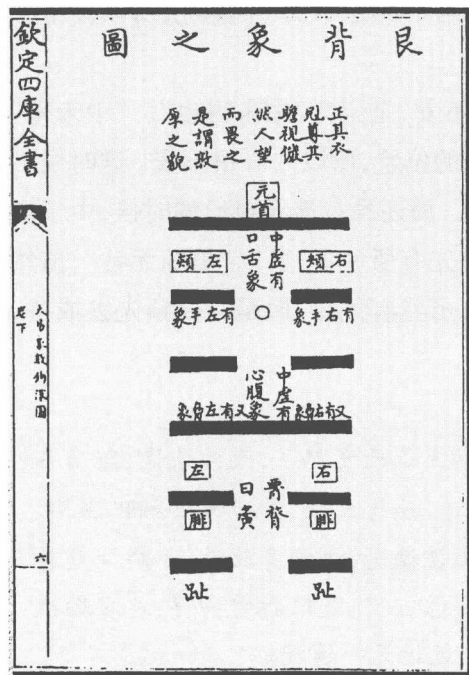 艮背象之圖
正其衣
冠尊其
瞻視儼
然人望
而畏之
是謂敦
厚之貌
元首
右頰
中虚有
口舌象
左頰
有右手象
有左手象
中虚有
心腹象
又有右肩象
又有左肩象
右
左
膂脊
曰夤
腓
腓
趾
趾
欽定四庫全書
大易象數鉤深圖
卷下
六